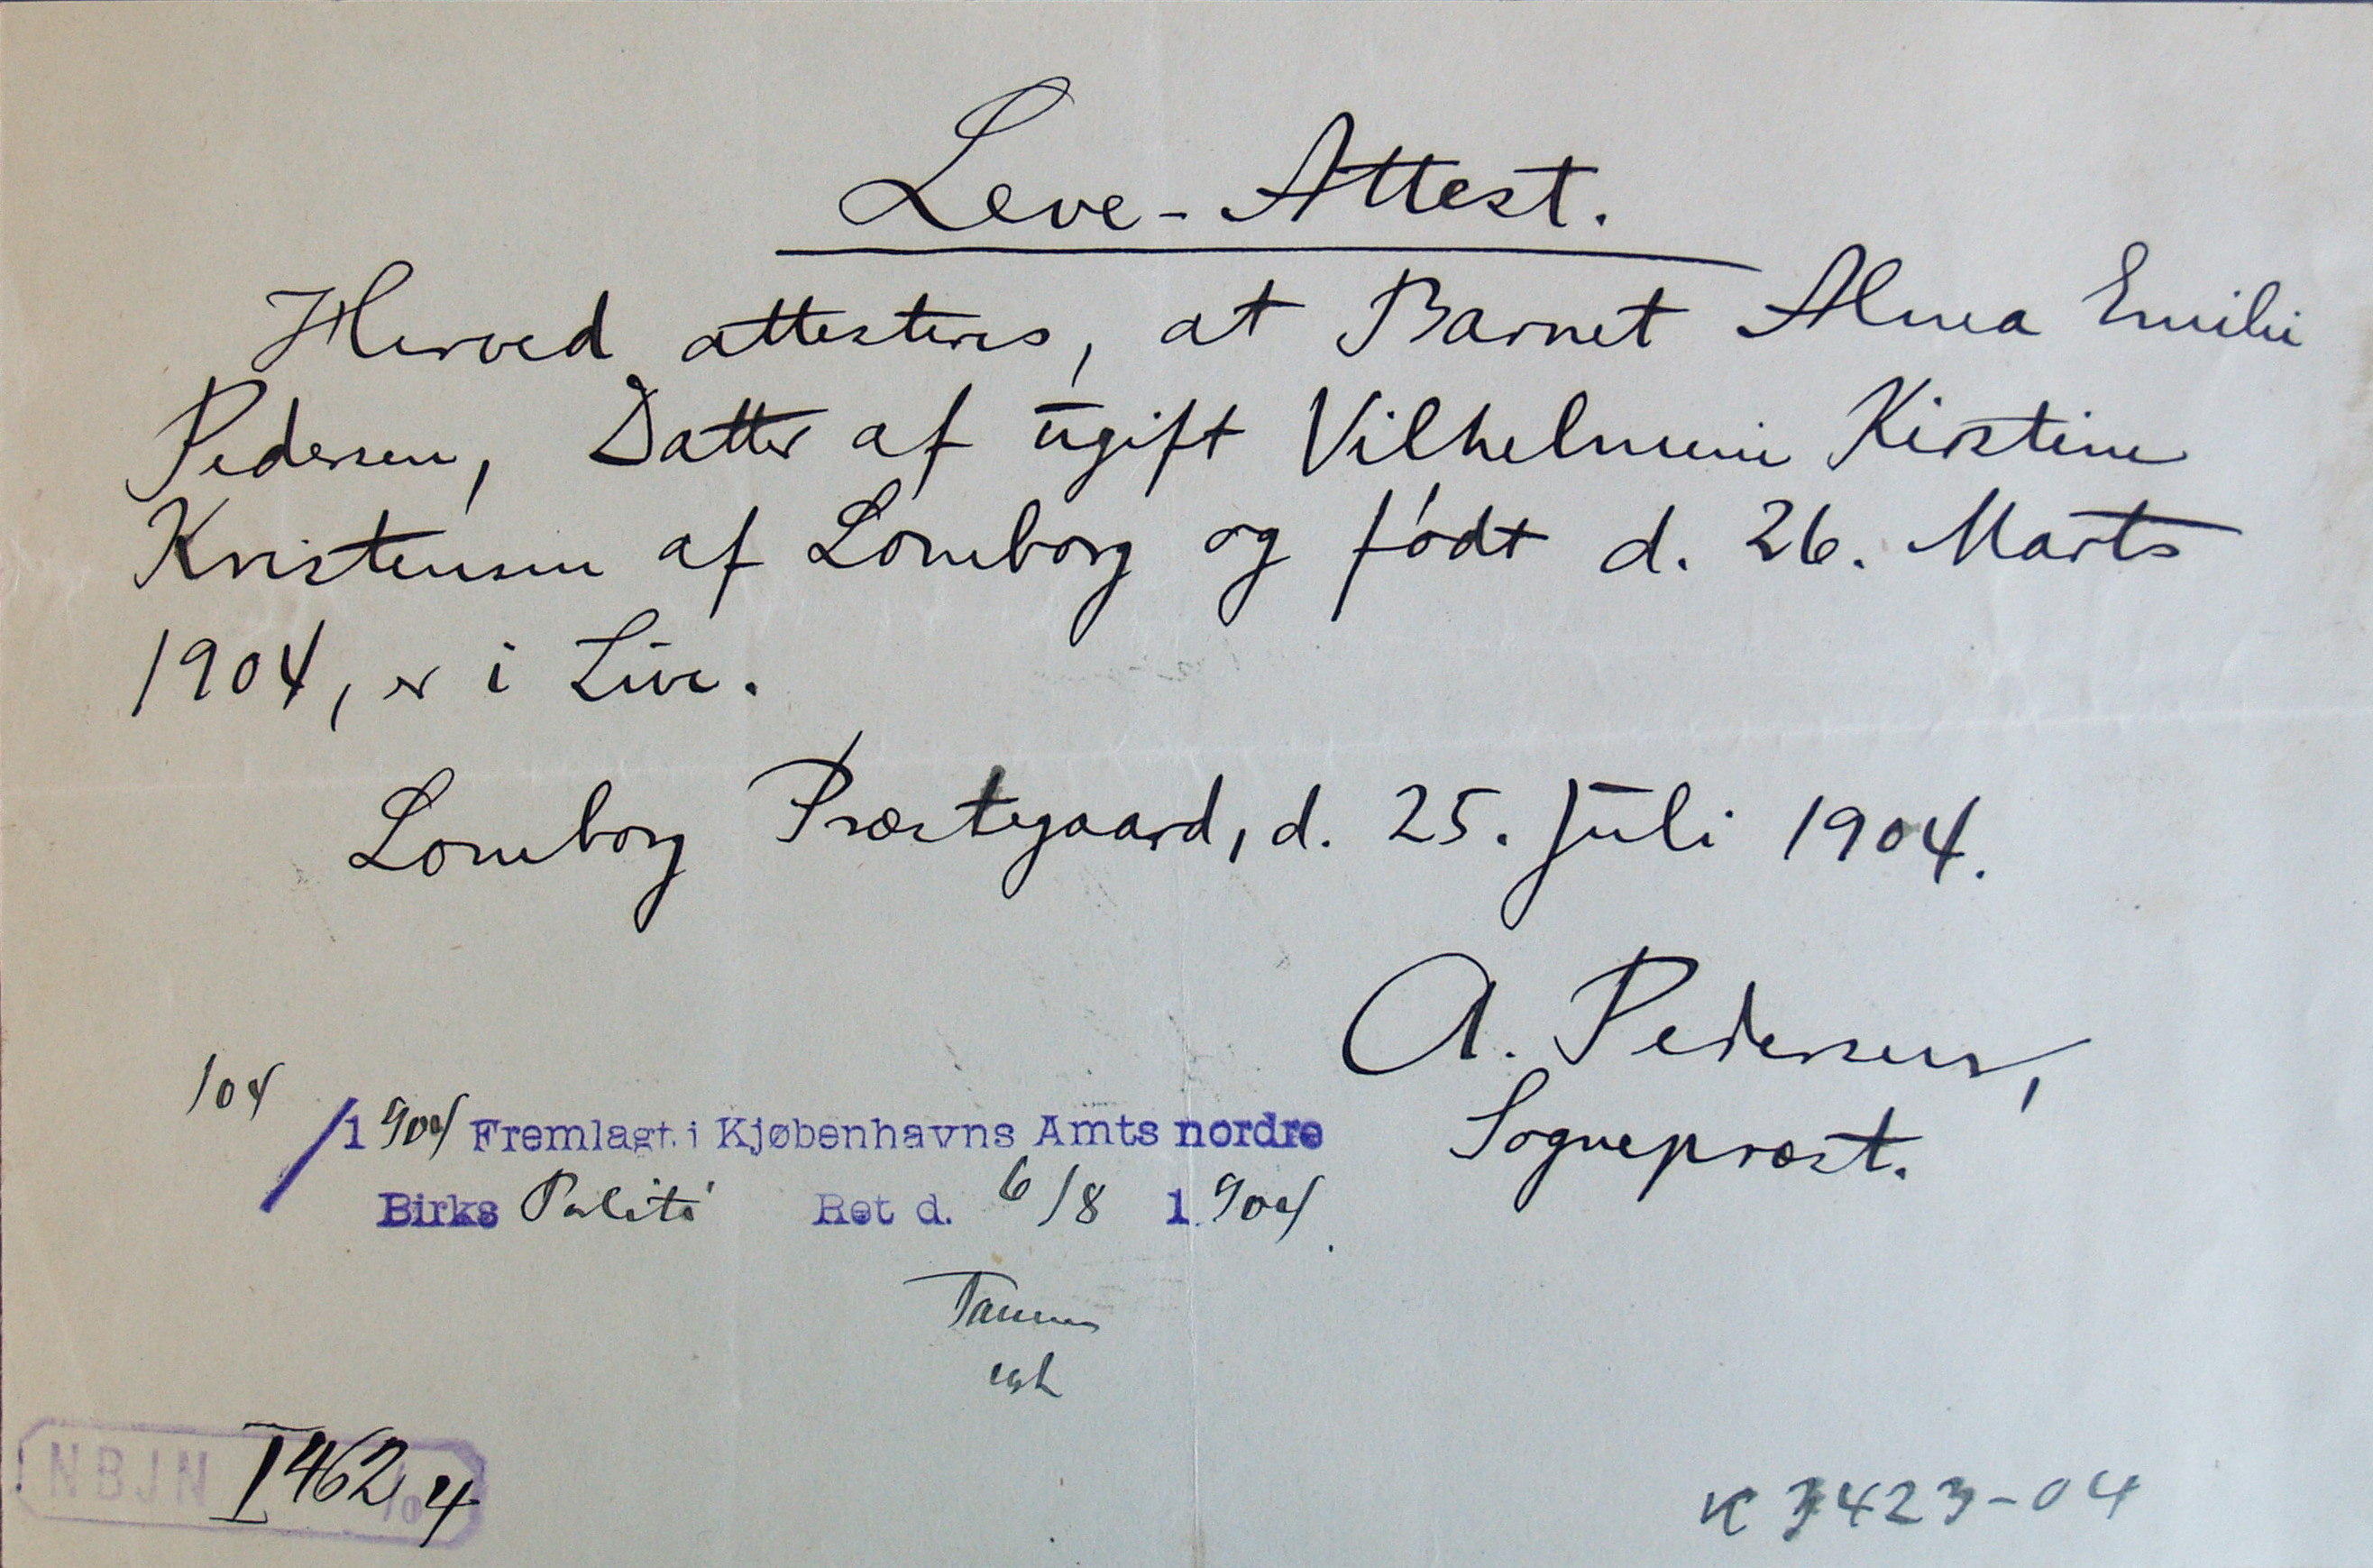 Leve-Attest.
Herved attesteres, at Barnet Alma Emilie
Pedersen, Datter af ugift Vilhelmine Kirstine
Kristensen af Lomborg og født d. 26. Marts
1904, er i Live.
Lomborg Præstegaard, d. 25. Juli 1904.
A. Pedersen,
Sognepræst.
104
/1904 Fremlagt i Kjøbenhavns Amts nordre
Birks Politi Ret d. 6/8 1904.
NBJN I 462/04
K 3423-04